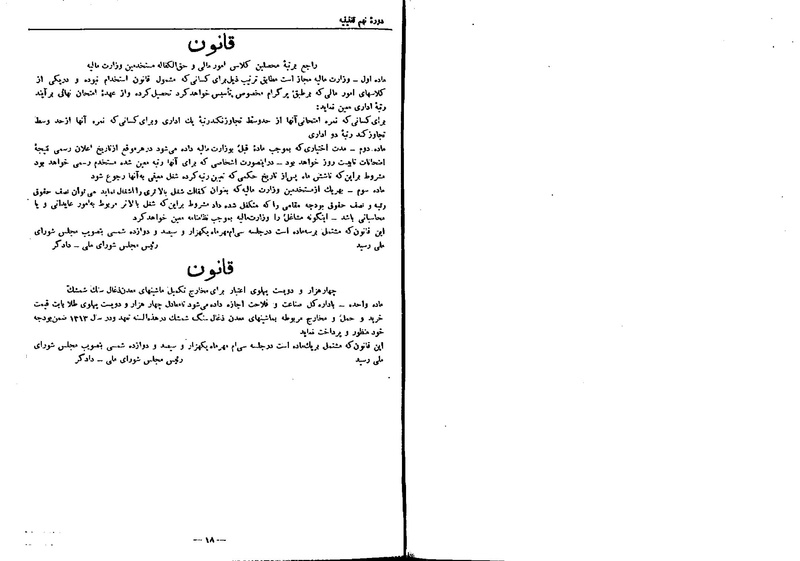 دورهٔ نهم تقنینیه
قانون
راجع برتبهٔ محصلین کلاس امور مالی و حق‌الکفاله مستخدمین وزارت مالیه
ماده اول ــ وزارت مالیه مجاز است مطابق ترتیب ذیل برای کسانی که مشمول قانون استخدام نبوده و دریکی از
کلاسهای امور مالی که برطبق پرگرام مخصوص تأسیس خواهدکرد تحصیل کرده واز عهدهٔ امتحان نهائی برآیند
رتبهٔ اداری معین نماید:
برای کسانی که نمره امتحانی آنها از حدوسط تجاوزنکندرتبهٔ یك اداری وبرای کسانی که نمره آنها ازحد وسط
تجاوزکند رتبهٔ دو اداری
ماده. دوم ــ مدت اختیاری که بموجب مادهٔ قبل بوزارت مالیه داده می‌شود درهرموقع ازتاریخ اعلان رسمی نتیجهٔ
امتحانات تابیست روز خواهد بود ــ دراینصورت اشخاصی که برای آنها رتبه معین شده مستخدم رسمی خواهد بود
مشروط براین که تاشش ماه پس‌از تاریخ حکمی که تعیین رتبه کرده شغل معینی به‌آنها رجوع شود
ماده سوم ــ بهریك ازمستخدمین وزارت مالیه که بعنوان کفالت شغل بالاتری را اشغال نماید می‌توان نصف حقوق
رتبه و نصف حقوق بودجه مقامی را که متکفل شده داد مشروط براین که شغل بالاتر مربوط به‌امور عایداتی و یا
محاسباتی باشد ــ اینگونه مشاغل را وزارت‌مالیه بموجب نظامنامه معین خواهدکرد
این قانون که مشتمل برسه‌ماده است درجلسه سی‌ام‌مهرماه یکهزار و سیصد و دوازده شمسی بتصویب مجلس شورای
ملی رسید رئیس مجلس شورای ملی ــ دادگر
قانون
چهارهزار و دویست پهلوی اعتبار برای مخارج تکمیل ماشینهای معدن ذغال سنك شمشك
ماده واحده ــ باداره کل صناعت و فلاحت اجازه داده می‌شود تامعادل چهار هزار و دویست پهلوی طلا بابت قیمت
خرید و حمل و مخارج مربوطه بماشینهای معدن ذغال سنگ شمشك درهذه‌السنه تعهد ودر سال ۱۳۱۳ ضمن‌بودجه
خود منظور و پرداخت نماید
این قانون که مشتمل بریك‌ماده است درجلسه سی‌ام مهرماه یکهزار و سیصد و دوازده شمسی بتصویب مجلس شورای
ملی رسید رئیس مجلس شورای ملی ــ دادگر
— ۱۸ —